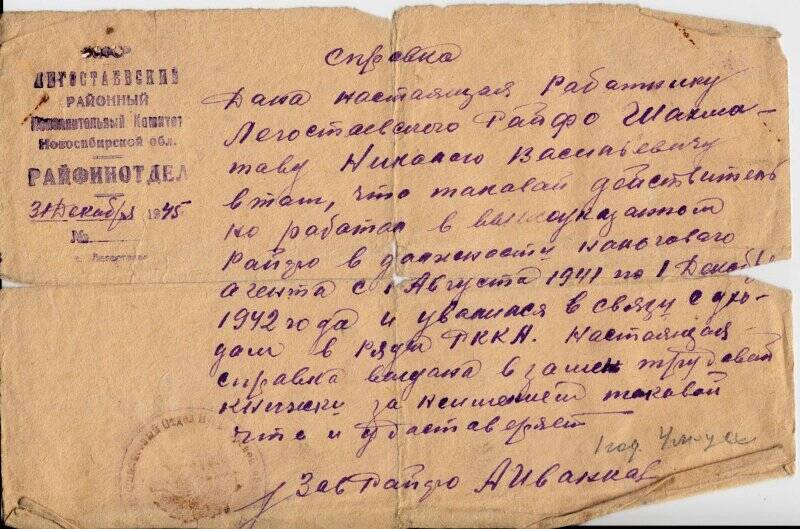 ЛЕГОСТАЕВСКИЙ
РАЙОННЫЙ
Исполнительный Комитет
Новосибирской обл.
РАЙФИНОТДЕЛ
31 Декабря 1945
№
с. Легостаево
справка
Дана настоящая Работнику
Легостаевского Райфо Шахма-
таву Николаю Васильевичу
в том, что таковай действитель
но работал в вышеуказанном
Райфо в должности налогового
агента с 1 Августа 1941 по 1 Декабр
1942 года и уволился в связу с ухо-
дам в ряды РККА. Настоящая
справка выдана в замен трудовай
книжки за неимением таковой
что и удаставеряет
1 год
Зав Райфо